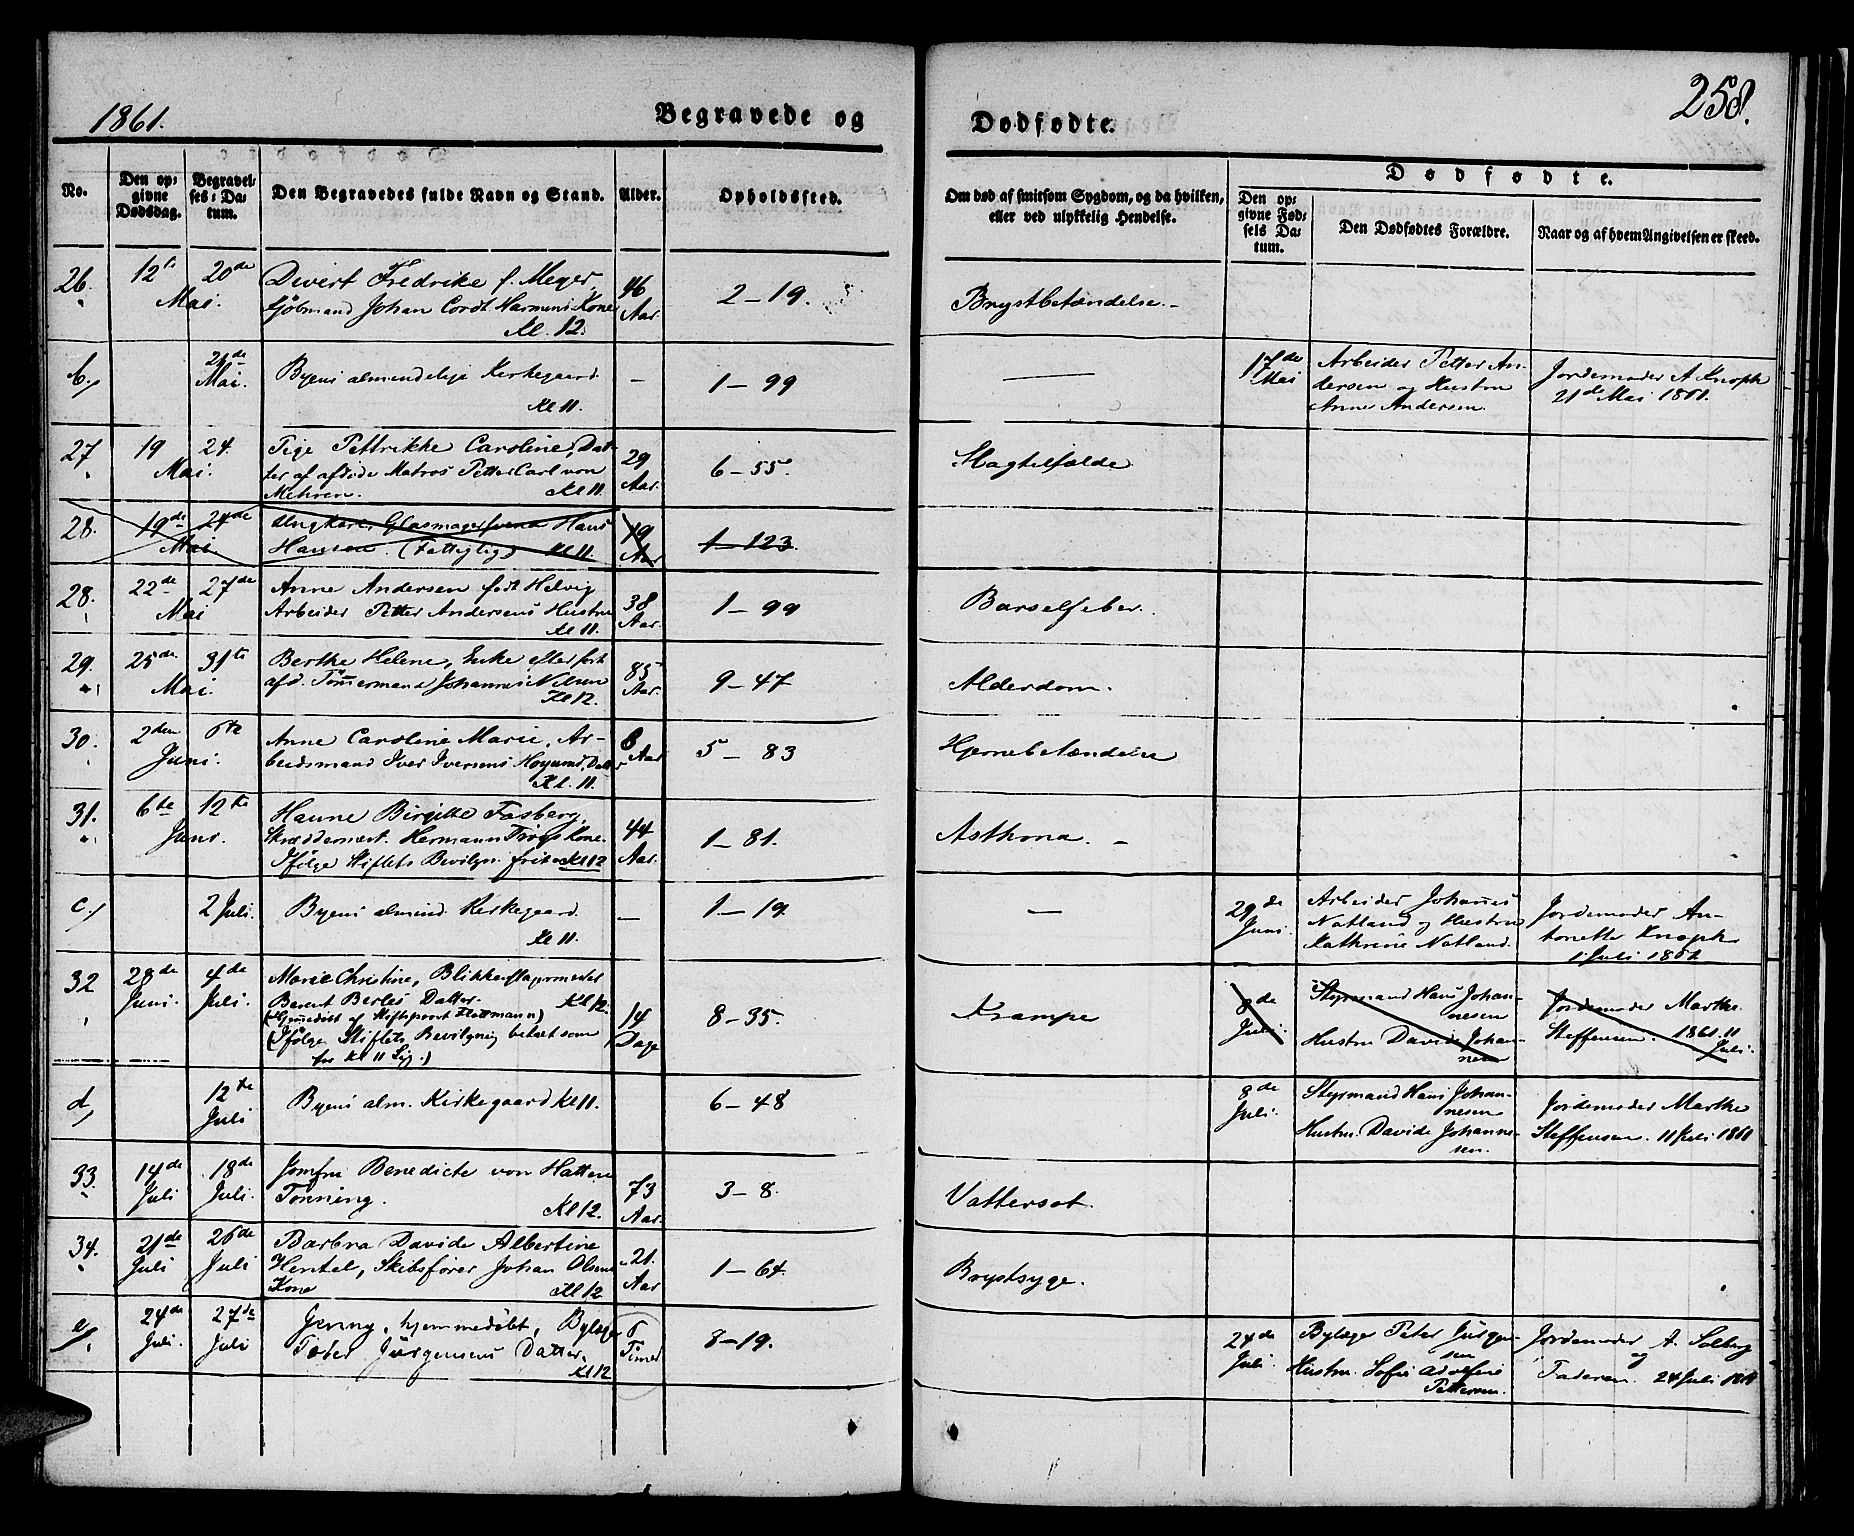 1861.
Begravede og
Dødfødte.
258.
No.
Den op-
givne
Dødsdag.
Begravel-
ses-Da-
tum.
Den Begravedes fulde Navn og Stand.
Alder.
Opholdssted.
Om død af smitsom Sygdom, og da hvilken,
eller ved ulykkelig Hendelse.
Dødfødte.
Den op-
givne Fød-
sels Da-
tum.
Den Dødfødtes Forældre.
Naar og af hvem Angivelsen er skeed.
26. 12te 20de Mai.
Divert Fredrike f. Meyer,
Kjøbmand Johan Cordt Harmens Kone
Kl. 12.
46 Aar.
2-19.
Brystbetændelse.
b,
21de Mai.
Byens almendelige Kirkegaard
Kl 11.
1-99
17de Mai
Arbeider Petter An-
dersen og Hustru
Anne Andersen.
Jordemoder A Knoph
21de Mai 1861.
27 19 24. Mai.
Tige Pettrikke Caroline, Dat-
ter af afdøde Matros Petter Carl von
Mehren. Kl 11.
29 Aar.
6-55.
Slagtilfælde
28. 19de 24de Mai
Glasmagersvend Hans
Hansen. (Fattiglig) Kl 11.
19 Aar
1-123.
28. 22de 27de Mai
Anne Andersen født Helvig
Arbeider Petter Andersens Hustru
Kl 11.
38 Aar.
1-99
Barselfeber.
29. 25de 31te Mai.
Berthe Helene, Enke efter
afd. Tømmermand Johannes Nilsen
Kl 12.
85 Aar.
9-47
Alderdom.
30. 2den 6te Juni.
Anne Caroline Marie, Ar-
beidsmand Iver Iversens Datter
Kl. 11.
6 Aar
5-83
Hjernebetændelse
31. 6te 12te Juni.
Hanne Birgitte Fasberg,
Skræddermest. Hermann Kone.
Ifølge Stiftets Bevilgn. Kl 12
44 Aar.
1-81.
Asthma.
c,
2 Juli.
Byens almind. Kirkegaard
Kl 11.
1-19
29de Juni.
Arbeider Johannes
Natland og Hustru
Kathrine Natland.
Jordemoder An-
tonette Knoph
1 Juli 1861
32 28de Juni. 4de Juli.
Marie Christine, Blikkenslagermester
Berent Berles Datter. Kl 12.
(Hjemmedøbt af Stiftsprovst Flottmann)
(Ifølge Stiftets Bevilgning betalt som
for Kl 11 Lig.)
14 Dage
8-35.
Krampe
8de Juli.
Styrmand Hans Johan-
nesen
Hustru Davide Johan-
nesen
Jordemoder Marthe
Steffensen. 1861. 11
Juli.
d,
12te Juli
Byens alm. Kirkegaard Kl 11.
6-48
8de Juli.
Styrmand Hans Johan-
nesen
Hustru. Davide Johanne-
sen.
Jordemoder Marthe
Steffensen. 11 Juli 1861
33. 14de Juli 18de Juli.
Jomfru Benedicte von Hatten
Tønning.
Kl 12.
73 Aar.
3-8.
Vattersot.
34. 21de Juli 26de Juli
Barbra Davide Albertine
Hentel, Skibsfører Johan Olsens
Kone Kl 12
21. Aar
1-64.
Brystsyge.
e, 24de Juli. 27de Juli
Jenny, hjemmedøbt, Bylæge
Peter Jürgensens Datter.
Kl 12
6 Timer
8-19.
24de Juli.
Bylæge Peter Jürgen-
sen
Hustru. Sofie Adolfine
Pettersen.
Jordemoder A. Solberg
og
Faderen. 24 Juli 1861